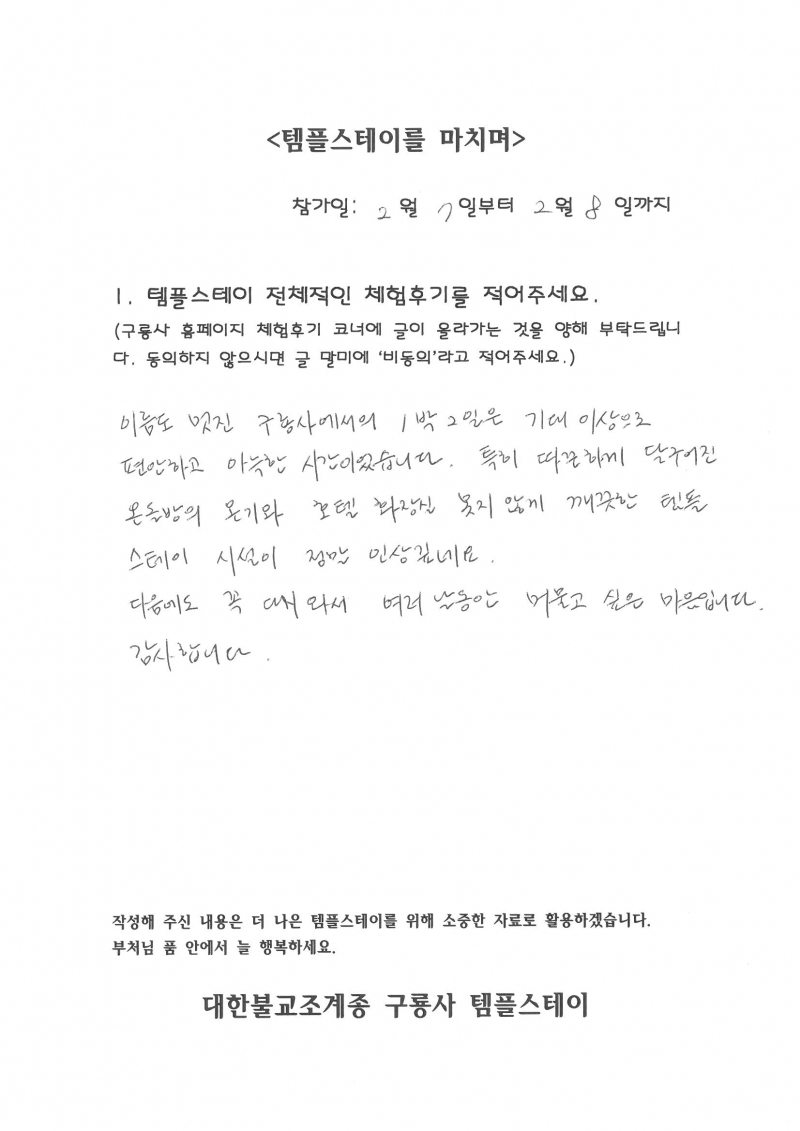 <템플스테이를 마치며>
참가일: 2 월 7 일부터 2 월 8 일까지
1. 템플스테이 전체적인 체험후기를 적어주세요.
(구룡사 홈페이지 체험후기 코너에 글이 올라가는 것을 양해 부탁드립니
다. 동의하지 않으시면 글 말미에 '비동의'라고 적어주세요.)
이름도 멋진 구룡사에서의 1박 2일은 기대 이상으로
편안하고 아늑한 시간이었습니다. 특히 따끈하게 달구어진
온돌방의 온기와 호텔 화장실 못지 않게 깨끗한 템플
스테이 시설이 정말 인상깊네요.
다음에도 꼭 다시 와서 여러 날동안 머물고 싶은 마음입니다.
감사합니다.
작성해 주신 내용은 더 나은 템플스테이를 위해 소중한 자료로 활용하겠습니다.
부처님 품 안에서 늘 행복하세요.
대한불교조계종 구룡사 템플스테이